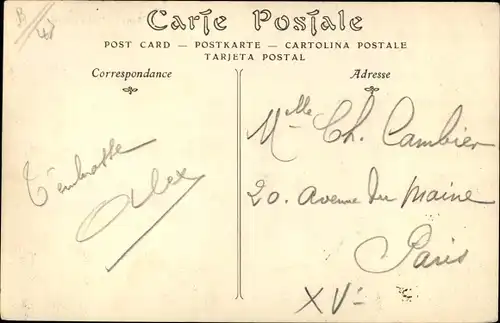 B
48
Carte Postale
POST CARD — POSTKARTE — CARTOLINA POSTALE
TARJETA POSTAL
Correspondance
Adresse
T'embrasse
Alex
Mlle Ch. Cambier
20. Avenue du Maine
Paris
XVe